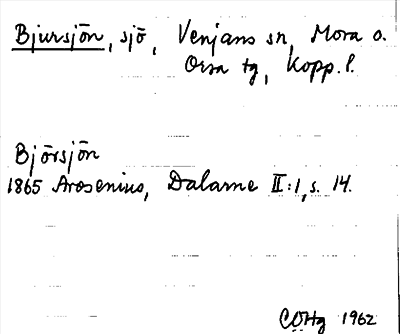 Bjursjön, sjö, Venjans sn, Mora o.
Orsa tg, Kopp. l.
Björsjön
1865 Arosenius, Dalarne II:1, s. 14.
COHg 1962